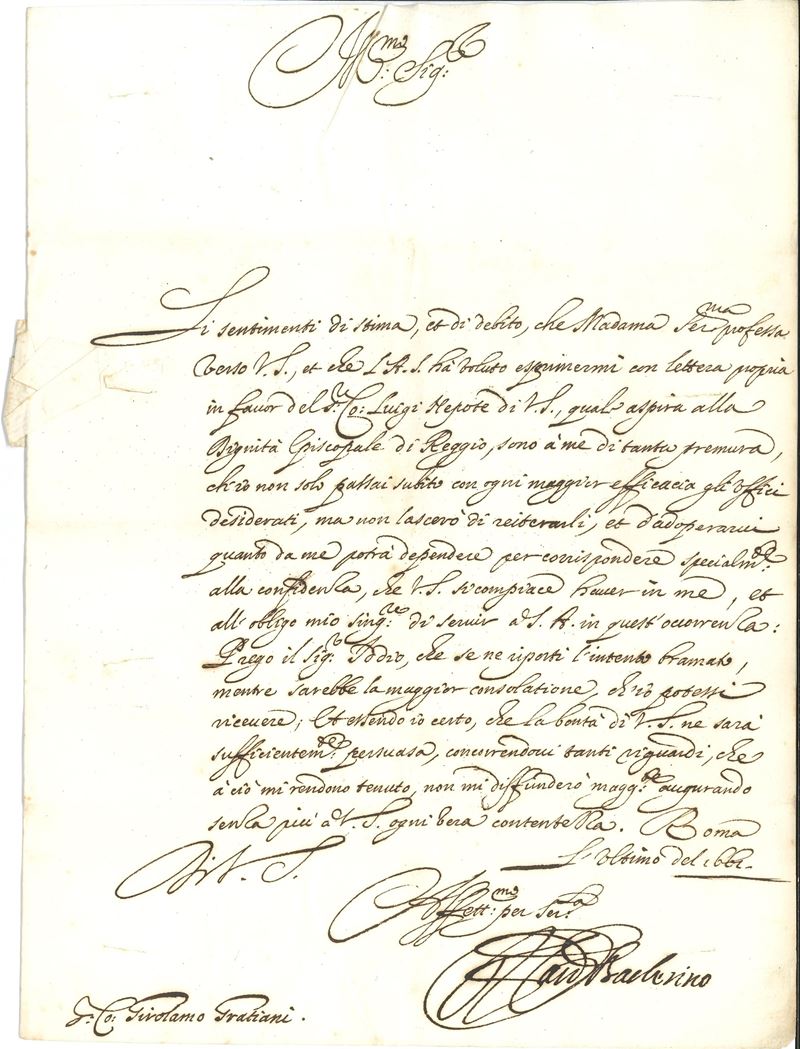 Ill:mo Sig:re
Li sentimenti di stima, et di debito, che Madama Ser:ma professa
verso V.S., et che L'A.S. há voluto esprimermi con lettera propria
in favor del S:r Co: Luigi Nepote di V.S., qual' aspira alla
Dignità Episcopale di Reggio, sono à me di tanta premura,
ch'io non solo passai subito con ogni maggior efficacia gli offici
desiderati, ma non lascerò di reiterarli, et d'adoperarvi
quanto da me potrà dependere per corrispondere specialm:te
alla confidenza, che V.S. si compiace haver in me, et
all' obligo mio sing:re di servir à S.A. in quest' occorrenza:
Prego il Sig:r Iddio, che se ne riporti l'intento bramato,
mentre sarebbe la maggior consolatione, ch'io potessi
ricevere; Et essendo io certo, che la bontà di V.S. ne sarà
sufficientem:te persuasa, concorrendovi tanti riguardi, che
à ciò mi rendono tenuto, non mi diffunderò magg:te augurando
senza più à V.S. ogni vera contentezza. Roma
L'ultimo del 1661.
Di V. S.
Affett:mo per ser:la
Card Barberino
S:r Co: Girolamo Gratiani.